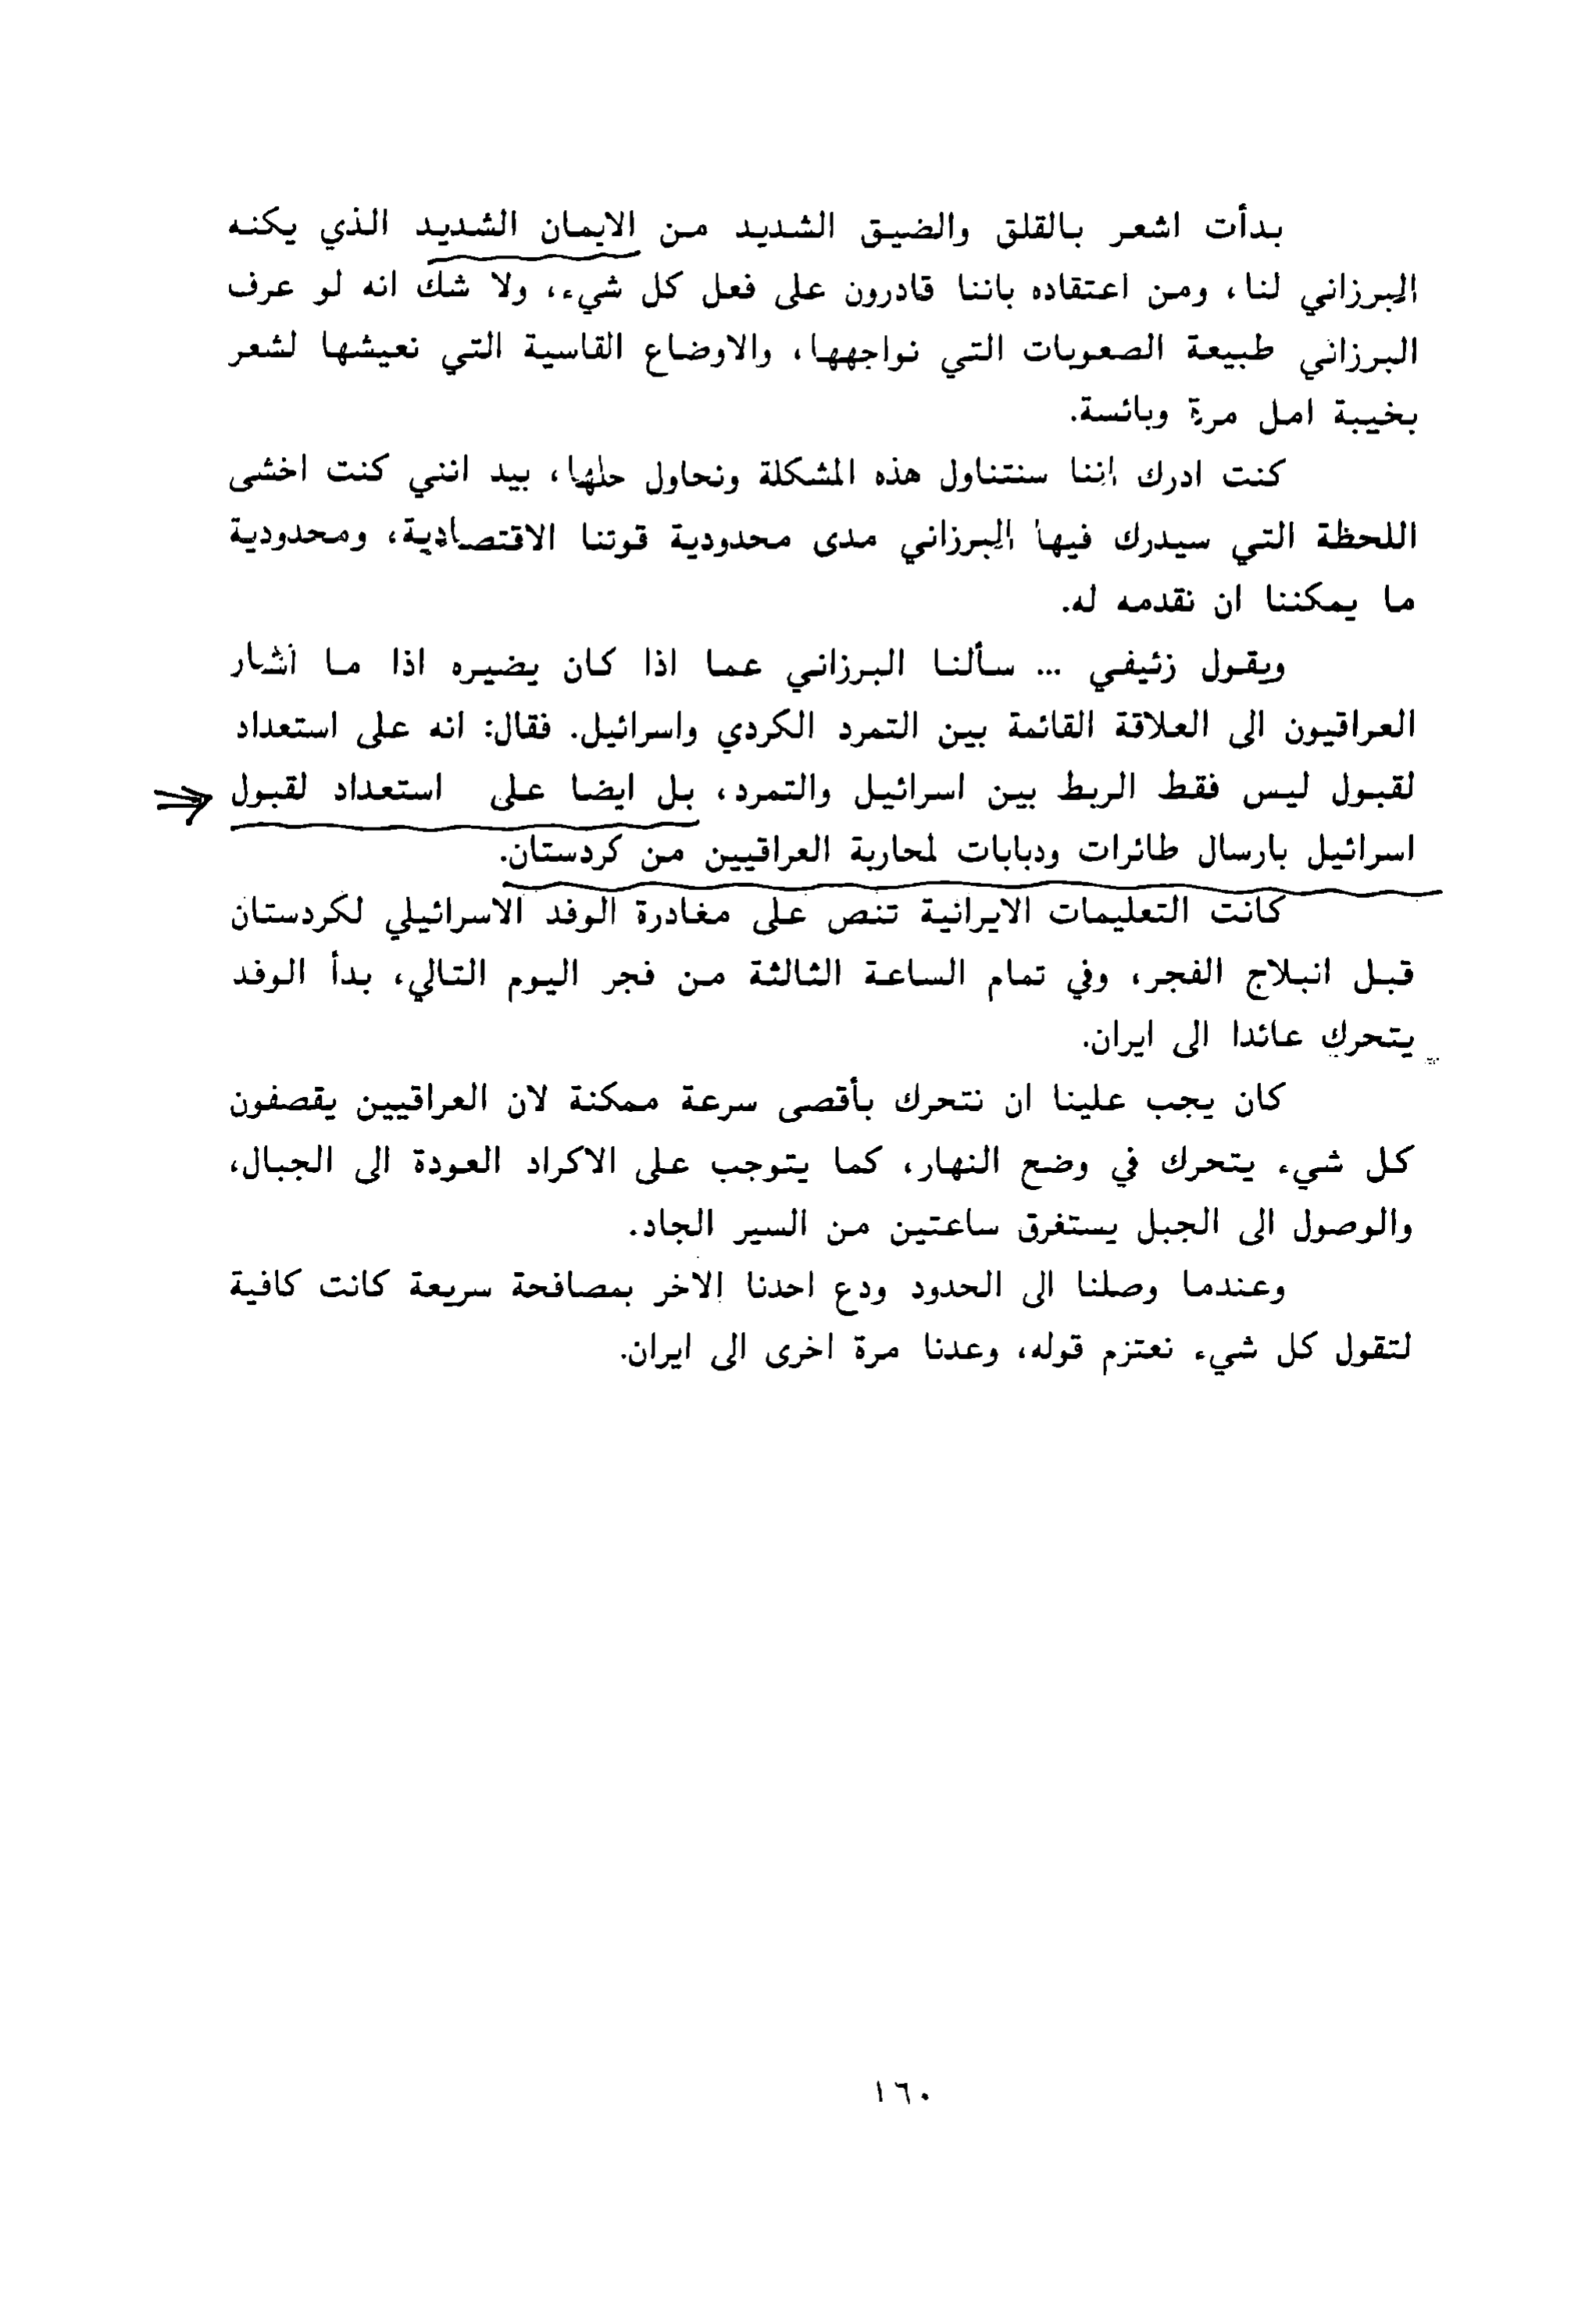 بدأت اشعر بالقلق والضيق الشديد من الايمان الشديد الذي يكنه
البرزاني لنا، ومن اعتقاده باننا قادرون على فعل كل شيء، ولا شك انه لو عرف
البرزاني طبيعة الصعوبات التي نواجهها، والاوضاع القاسية التي نعيشها لشعر
بخيبة امل مرة وبائسة.
كنت ادرك اننا سنتناول هذه المشكلة ونحاول حلها، بيد انني كنت اخشى
اللحظة التي سيدرك فيها البرزاني مدى محدودية قوتنا الاقتصادية، ومحدودية
ما يمكننا ان نقدمه له.
ويقول زئيفي ... سألنا البرزاني عما اذا كان يضيره اذا ما اشار
العراقيون الى العلاقة القائمة بين التمرد الكردي واسرائيل. فقال: انه على استعداد
لقبول ليس فقط الربط بين اسرائيل والتمرد، بل ايضا على استعداد لقبول
اسرائيل بارسال طائرات ودبابات لمحاربة العراقيين من كردستان.
كانت التعليمات الايرانية تنص على مغادرة الوفد الاسرائيلي لكردستان
قبل انبلاج الفجر، وفي تمام الساعة الثالثة من فجر اليوم التالي، بدأ الوفد
يتحرك عائدا الى ايران.
كان يجب علينا ان نتحرك بأقصى سرعة ممكنة لان العراقيين يقصفون
كل شيء يتحرك في وضح النهار، كما يتوجب على الاكراد العودة الى الجبال،
والوصول الى الجبل يستغرق ساعتين من السير الجاد.
وعندما وصلنا الى الحدود ودع احدنا الاخر بمصافحة سريعة كانت كافية
لتقول كل شيء نعتزم قوله، وعدنا مرة اخرى الى ايران.
١٦٠